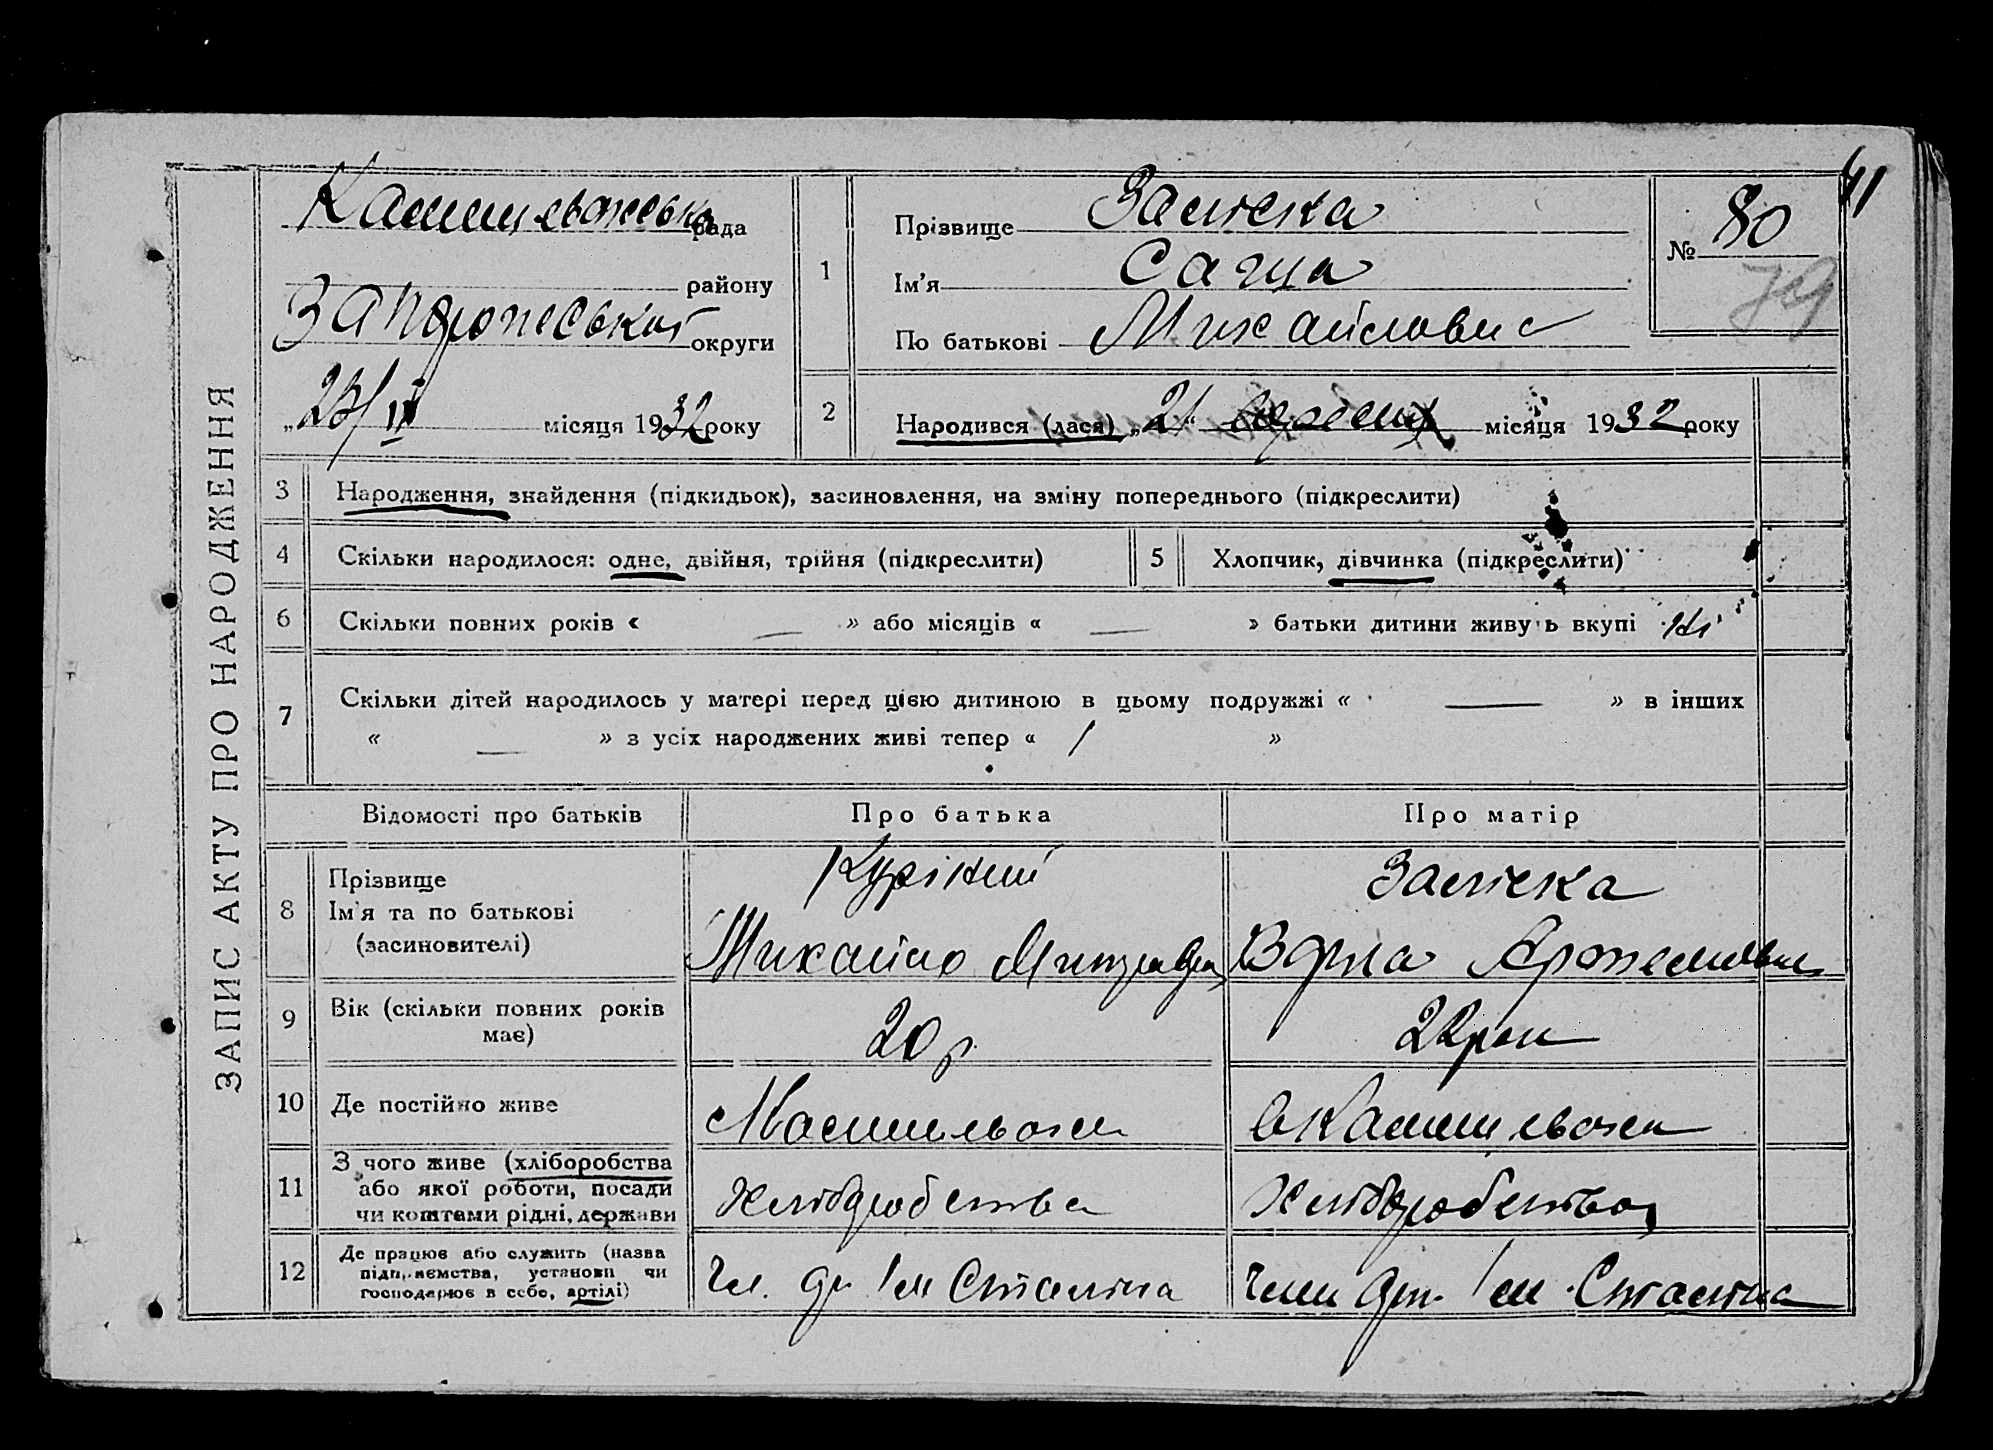 ЗАПИС АКТУ ПРО НАРОДЖЕННЯ
рада
району
Запорізької округи
„23/IX місяця 1932 року
1
Прізвище Заліска
Ім'я Саша
По батькові Михайлович
№ 80
79
41
2
Народився (лася) „21“ вересня місяця 1932 року
3 Народження, знайдення (підкидьок), засиновлення, на зміну попереднього (підкреслити)
4 Скільки народилося: одне, двійня, трійня (підкреслити)
5 Хлопчик, дівчинка (підкреслити)
6 Скільки повних років « — » або місяців « — » батьки дитини живуть вкупі ні
7 Скільки дітей народилось у матері перед цією дитиною в цьому подружжі « — » в інших
« — » з усіх народжених живі тепер « 1 »
Відомості про батьків Про батька Про матір
8 Прізвище
Ім'я та по батькові
(засиновителі)
Курінний
Михайло
Заліска
9 Вік (скільки повних років
має)
20 р.
10 Де постійно живе
11 З чого живе (хліборобства
або якої роботи, посади
чи коштами рідні, держави
Хліборобства
Хліборобства
12 Де працює або служить (назва
підприємства, установи чи
господарює в себе, артілі)
Чл. ар. Ім Сталіна
Член арт. Ім. Сталіна